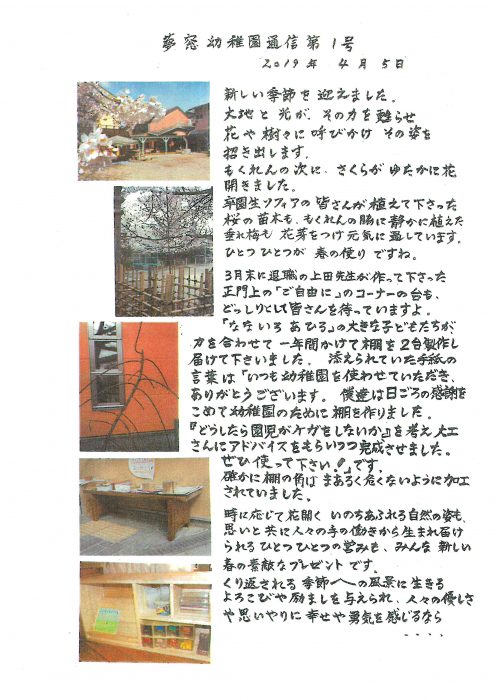 夢窓幼稚園通信第1号
2019年 4月 5日
新しい季節を迎えました。
大地と光が、その力を甦らせ
花や樹々に呼びかけ その姿を
招き出します。
もくれんの次に、さくらが ゆたかに花
開きました。
卒園生ソフィアの皆さんが植えて下さった
桜の苗木も、もくれんの脇に静かに植えた
垂れ梅も 花芽をつけ元気に過しています。
ひとつひとつが 春の便り ですね。
3月末に退職の上田先生が作って下さった
正門上の「ご自由に」のコーナーの台も、
どっしりとして皆さんを待っていますよ。
「なないろ あひる」の大きな子どもたちが
力を合わせて 一年間かけて棚を2台製作し
届けて下さいました。 添えられていた手紙の
言葉は「いつも幼稚園を使わせていただき、
ありがとうございます。 僕達は日ごろの感謝を
こめて幼稚園のために棚を作りました。
『どうしたら園児がケガをしないか』を考え大工
さんにアドバイスをもらいつつ完成させました。
ぜひ使って下さい!」です。
確かに棚の角は まあるく危くないように加工
されていました。
時に応じて花開く いのちあふれる自然の姿も、
思いと共に人々の手の働きから生まれ届け
られるひとつひとつの営みも、みんな 新しい
春の素敵なプレゼント です。
くり返される季節の風景に生きる
よろこびや励ましを与えられ、人々の優しさ
や思いやりに幸せや勇気を感じるなら
・・・・